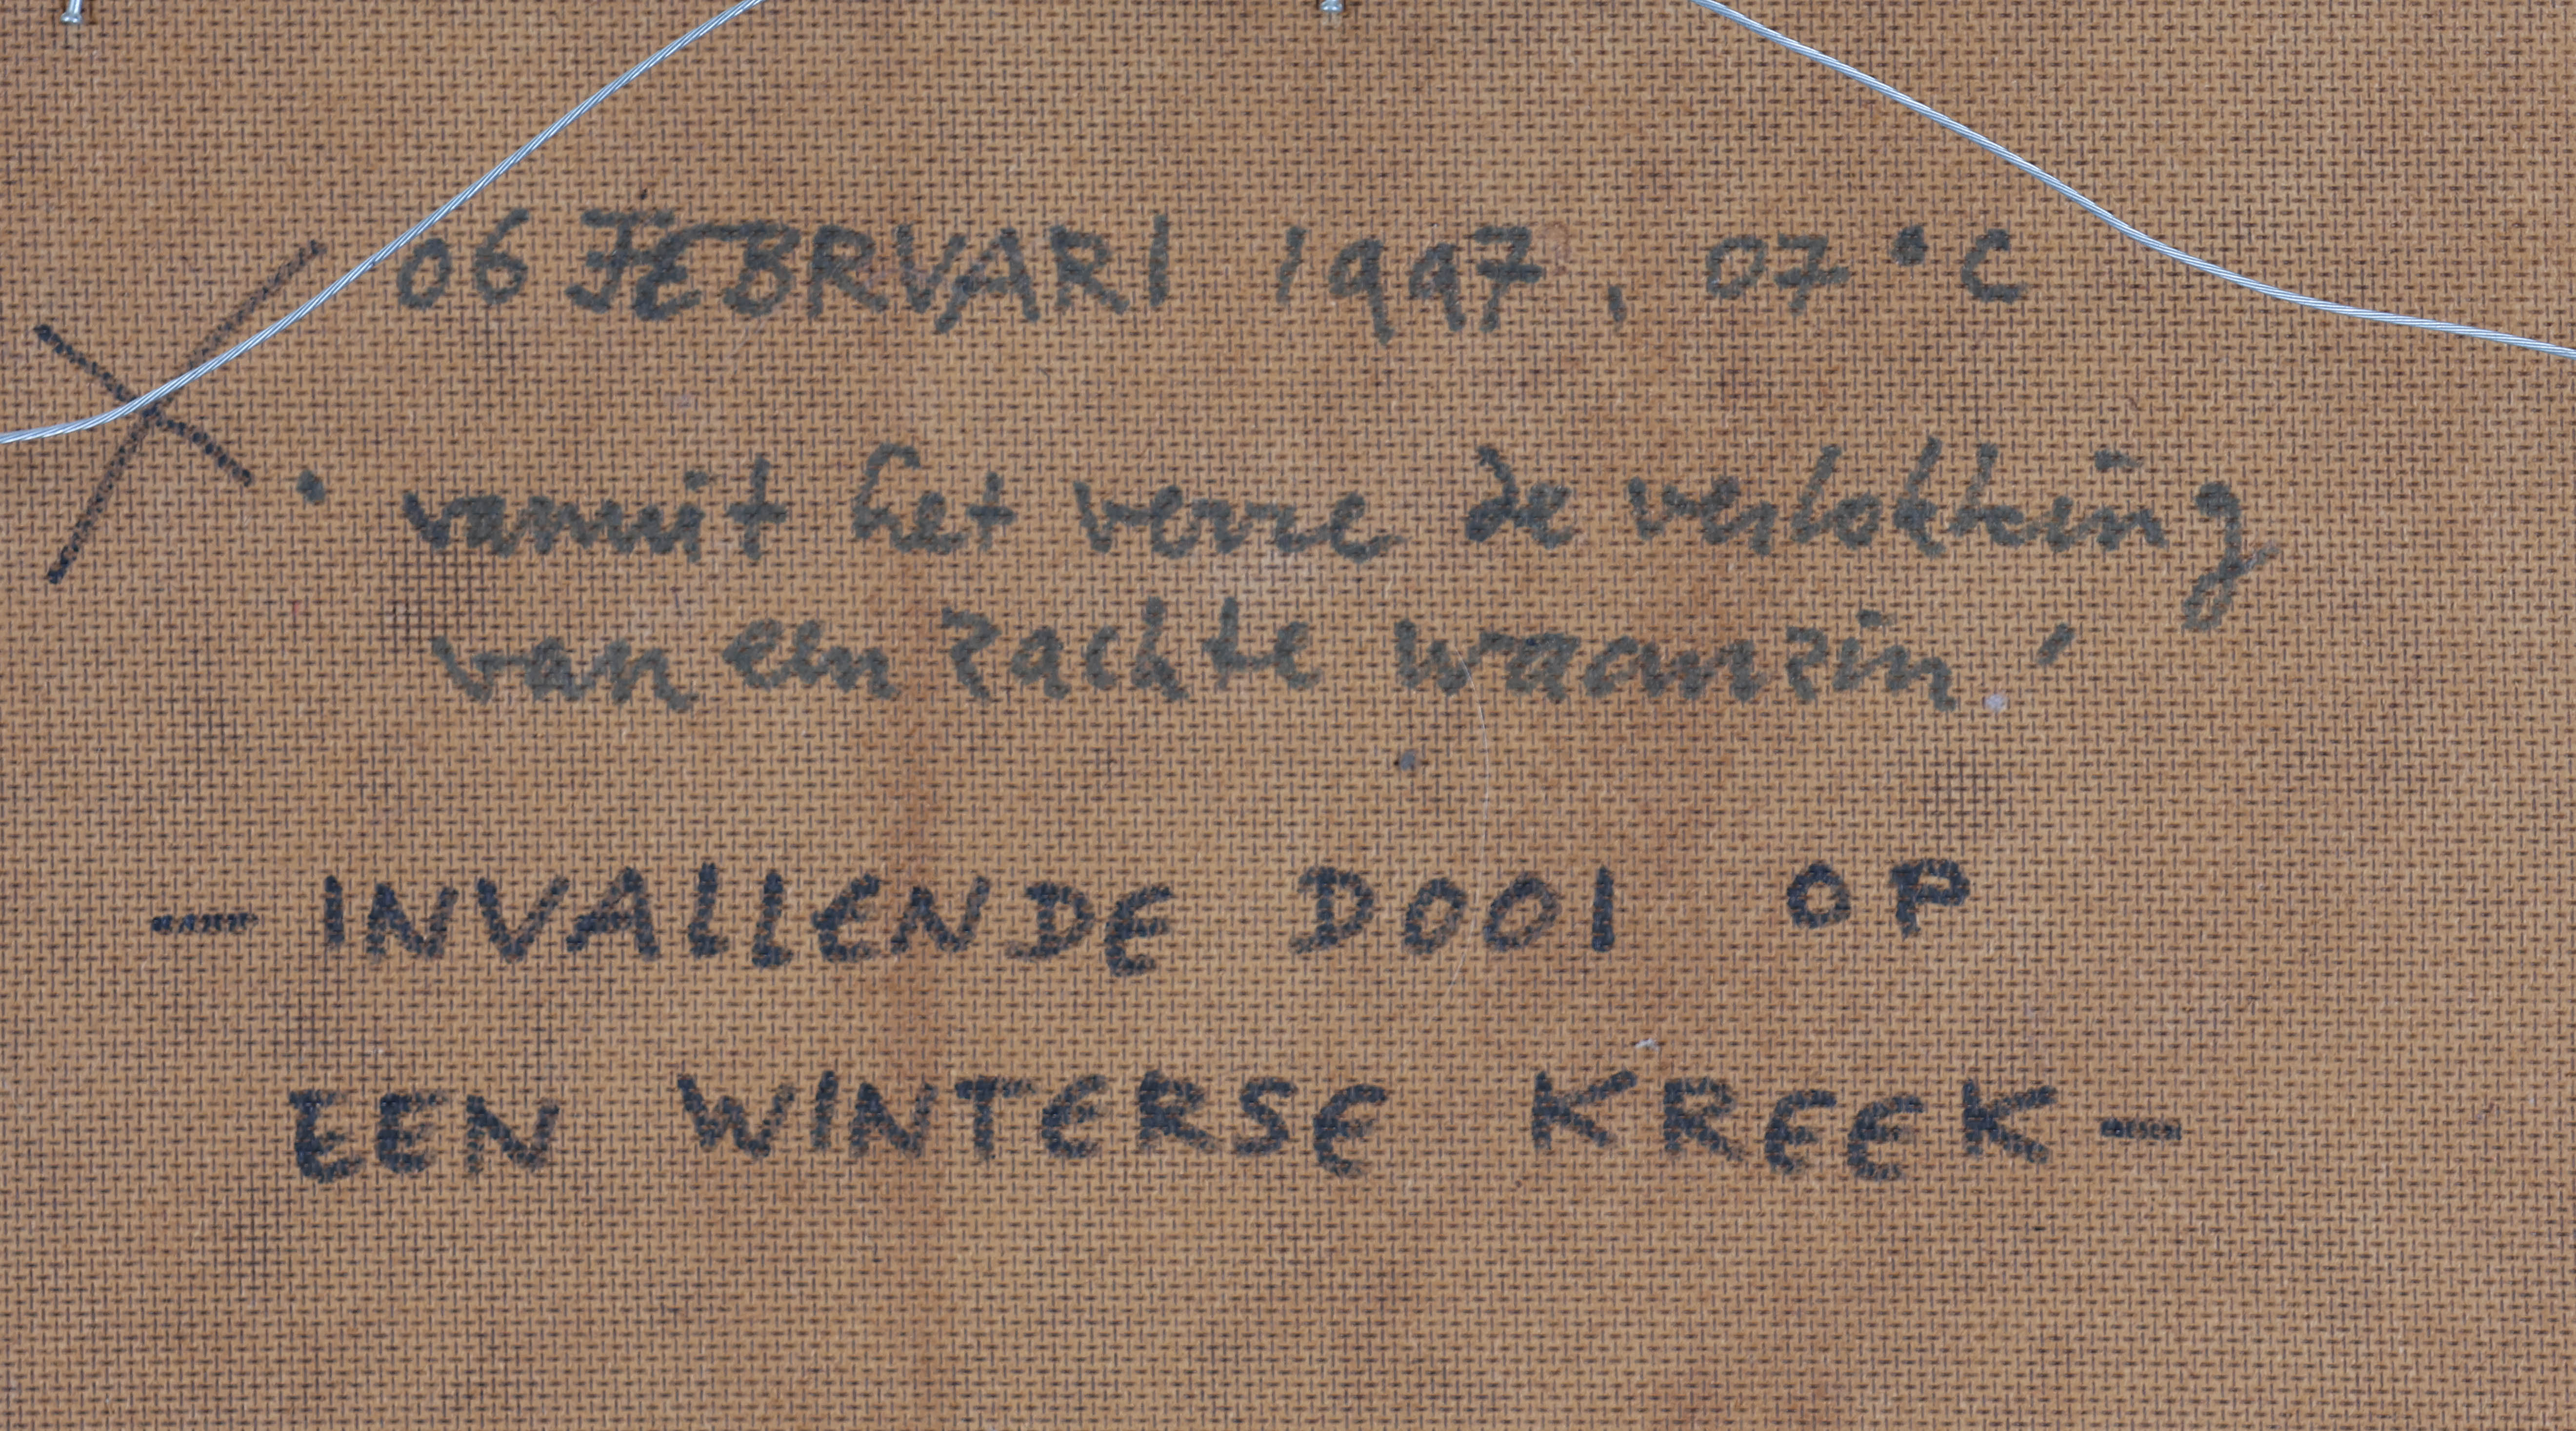 06 FEBRVARI 1997, 07°C
' vanuit het verre de verlokking
van een zachte waanzin.'
- INVALLENDE DOOI OP
EEN WINTERSE KREEK -